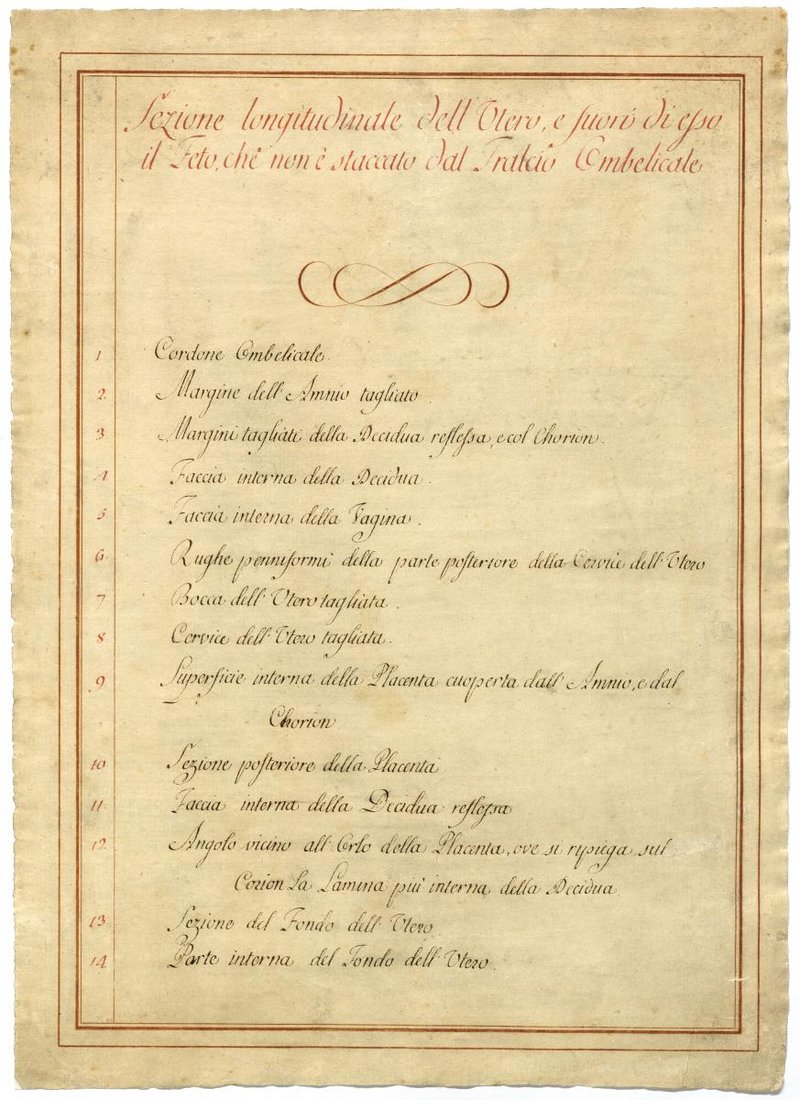 Sezione longitudinale dell'Utero, e fuori di esso
il Feto, che non è staccato dal Tralcio Ombelicale
1 Cordone Ombelicale.
2 Margine dell'Amnio tagliato.
3 Margini tagliati della Decidua reflessa, e col Chorion.
4 Faccia interna della Decidua.
5 Faccia interna della Vagina.
6 Rughe penniformi della parte posteriore della Cervice dell'Utero
7 Bocca dell'Utero tagliata.
8 Cervice dell'Utero tagliata.
9 Superficie interna della Placenta cuoperta dall'Amnio, e dal
Chorion
10 Sezione posteriore della Placenta
11 Faccia interna della Decidua reflessa
12 Angolo vicino all'Orlo della Placenta, ove si ripiega sul
Corion La Lamina più interna della Decidua
13 Sezione del Fondo dell'Utero
14 Parte interna del Fondo dell'Utero.